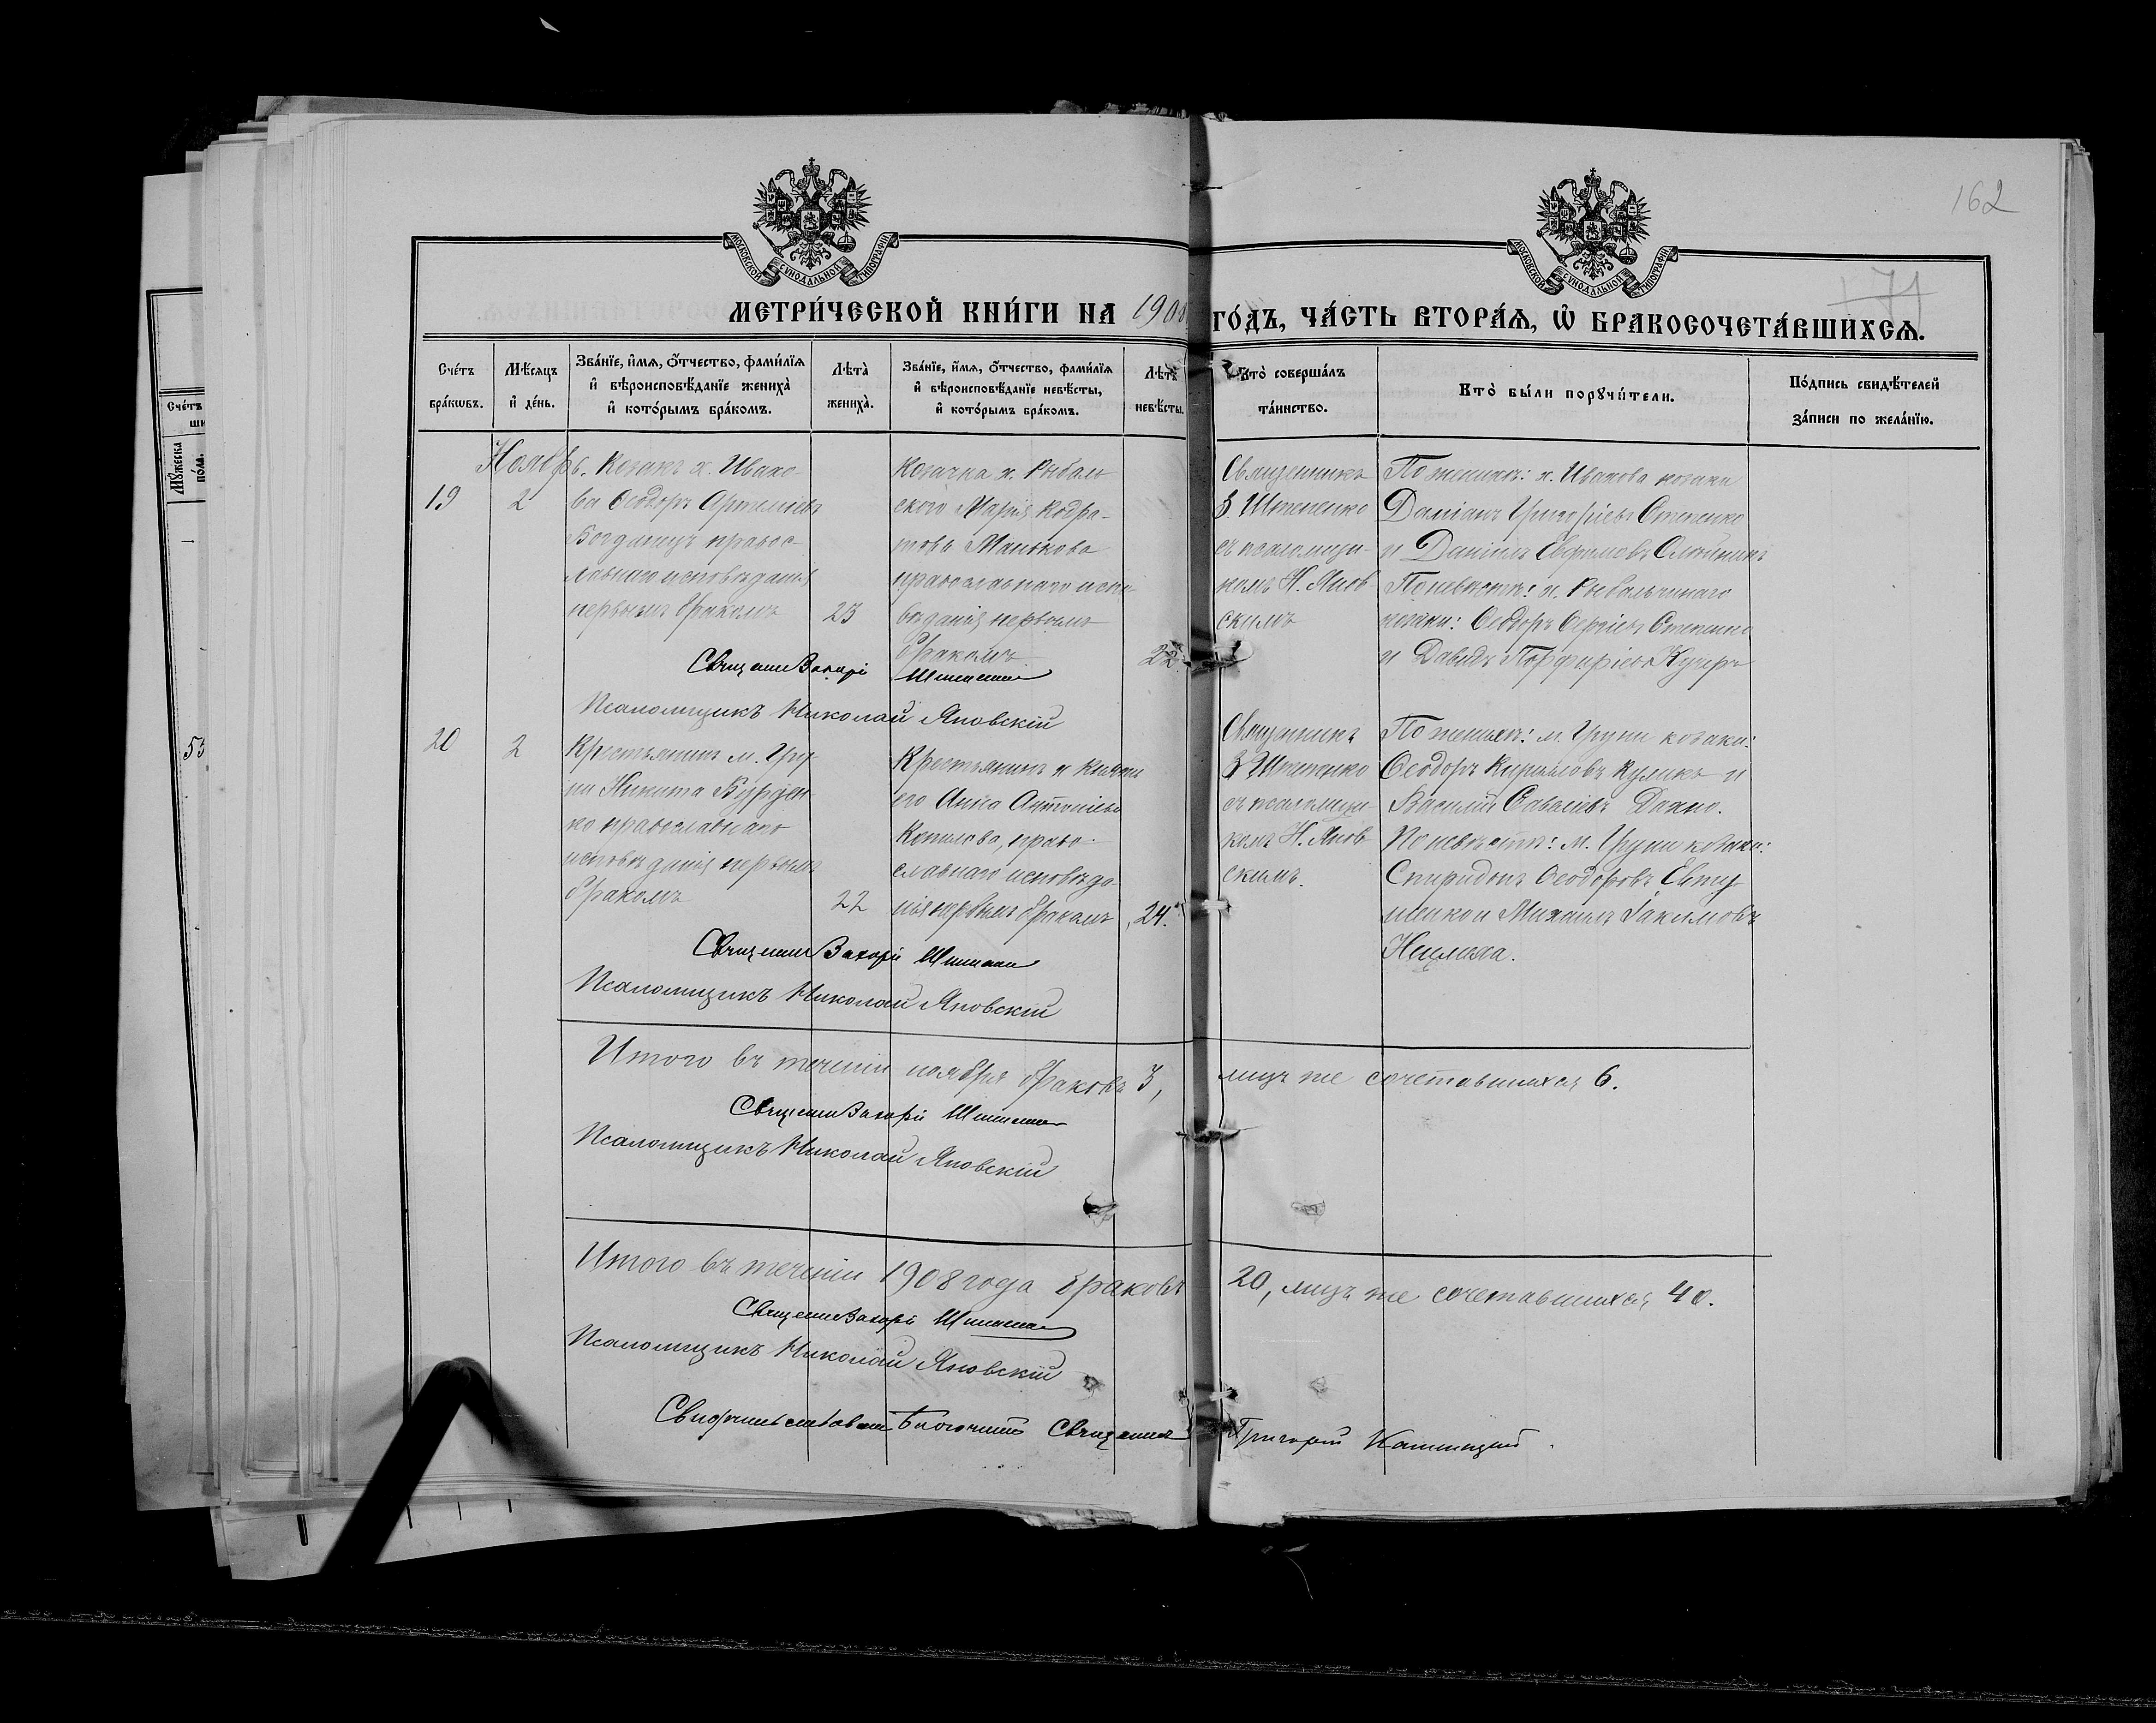 162
МОСКОВСКОЙ СУНОДАЛЬНОЙ ТИПОГРАФІИ
МОСКОВСКОЙ СУНОДАЛЬНОЙ ТИПОГРАФІИ
МЕТРИ́ЧЕСКОЙ КНИ́ГИ НА 1908 ГО́ДЪ, ЧА́СТЬ ВТОРА́Ѧ, Ѡ БРАКОСОЧЕТА́ВШИХСѦ.
Сче́тъ бра́кѡвъ.
Мѣ́сѧцъ и҆ де́нь.
Зва́нїе, и҆́мѧ, ѻ҆́тчество, фами́лїѧ и҆ вѣроисповѣ́данїе жениха̀ и҆ кото́рымъ бра́комъ.
Лѣта̀ жениха̀.
Зва́нїе, и҆́мѧ, ѻ҆́тчество, фами́лїѧ и҆ вѣроисповѣ́данїе невѣ́сты, и҆ кото́рымъ бра́комъ.
Лѣта̀ невѣ́сты.
Кто̀ соверша́лъ та́инство.
Кто̀ бы́ли порꙋчи́тели.
По́дпись свидѣ́телей за́писи по жела́нїю.
Ноябрь.
19
2
Козакъ х. Ивако-
ва Ѳеодоръ Артеміевъ
Богданецъ правос-
лавнаго исповѣданія
первымъ бракомъ
25
Козачка х. Рыбаль
ского Марія Кодра-
това Манькова
православнаго испо-
вѣданія первымъ
бракомъ
22.
Священникъ
З. Штепенко
съ псаломщи-
комъ Н. Янов
скимъ
По женихѣ: х. Ивакова козаки
Даміанъ Григоріевъ Степенко
и Даніилъ Евфимовъ Олейникъ
По невѣстѣ: х. Рыбальчинаго
козаки: Ѳеодоръ Сергіевъ Степенко
и Давидъ Порфиріевъ Кучеръ
Священн Захарій Штепенко
Псаломщикъ Николай Яновскій
20
2
Крестьянинъ м. Гру-
ни Никита Бурден-
ко православнаго
исповѣданія первымъ
бракомъ
22
Анна Антоніева
Копылова, право-
славнаго исповѣда-
нія первымъ бракомъ
24.
Священникъ
З Штепенко
съ псаломщи-
комъ Н. Янов
скимъ.
По женихѣ: м. Груни козаки:
Ѳеодоръ Кирилловъ Куликъ и
Василій Савеліевъ Дахно.
По невѣстѣ: м. Груни козаки:
Спиридонъ Ѳеодоровъ Евту
шенко и Михаилъ Іакимовъ
Священн Захарій Штепенко
Псаломщикъ Николай Яновскій
Итого въ теченіи ноября браковъ 3, лицъ же сочетавшихся 6.
Священн Захарій Штепенко
Псаломщикъ Николай Яновскій
Итого въ теченіи 1908 года браковъ 20, лицъ же сочетавшихся 40.
Священн Захарій Штепенко
Псаломщикъ Николай Яновскій
Благочинный Священникъ Григорій
Сче́тъ
Мꙋ́жеска по́ла.
53